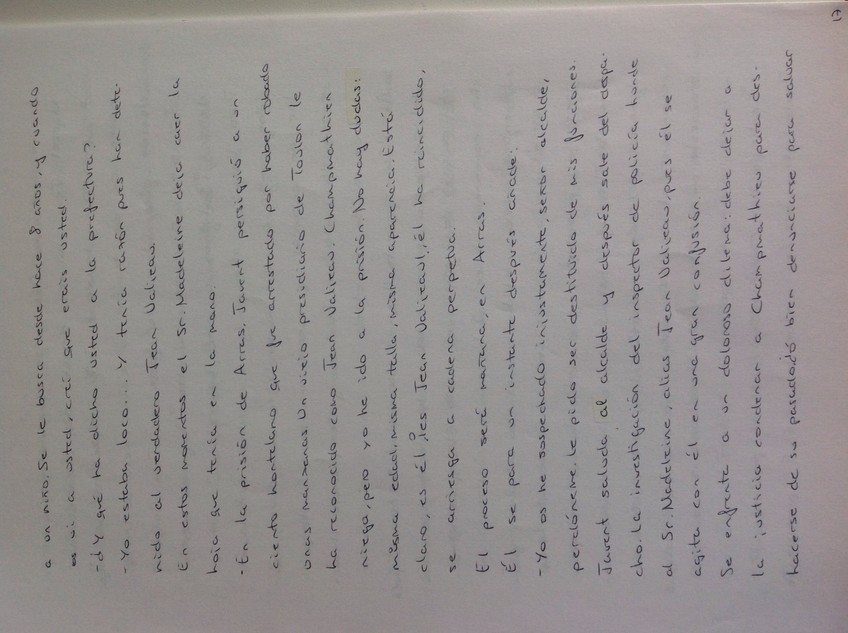 17
a un niño. Se le busca desde hace 8 años, y cuando
os vi a usted, creí que erais usted.
-¿Y qué ha dicho usted a la prefectura?
-Yo estaba loco... Y tenía razón pues han dete-
nido al verdadero Jean Valjean.
En estos momentos el Sr. Madeleine deja caer la
hoja que tenía en la mano.
-En la prisión de Arras, Javert persiguió a un
ciento hortelano que fue arrestado por haber robado
unas manzanas. Un viejo presidiario de Toulon le
ha reconocido como Jean Valjean. Champmathieu
niega, pero yo he ido a la prisión. No hay dudas:
misma edad, misma talla, misma apariencia. Está
claro, es él, ¡es Jean Valjean!, él ha reincidido,
se arriesga a cadena perpetua.
El proceso será mañana, en Arras.
Él se para un instante después añade:
-Yo os he sospechado injustamente, señor alcalde,
perdóneme. Le pido ser destituido de mis funciones.
Javert saluda al alcalde y después sale del despa-
cho. La investigación del inspector de policía hunde
al Sr. Madeleine, alias Jean Valjean, pues él se
agita con él en una gran confusión.
Se enfrenta a un doloroso dilema: debe dejar a
la justicia condenar a Champmathieu para des-
hacerse de su pasado, o bien denunciarse para salvar